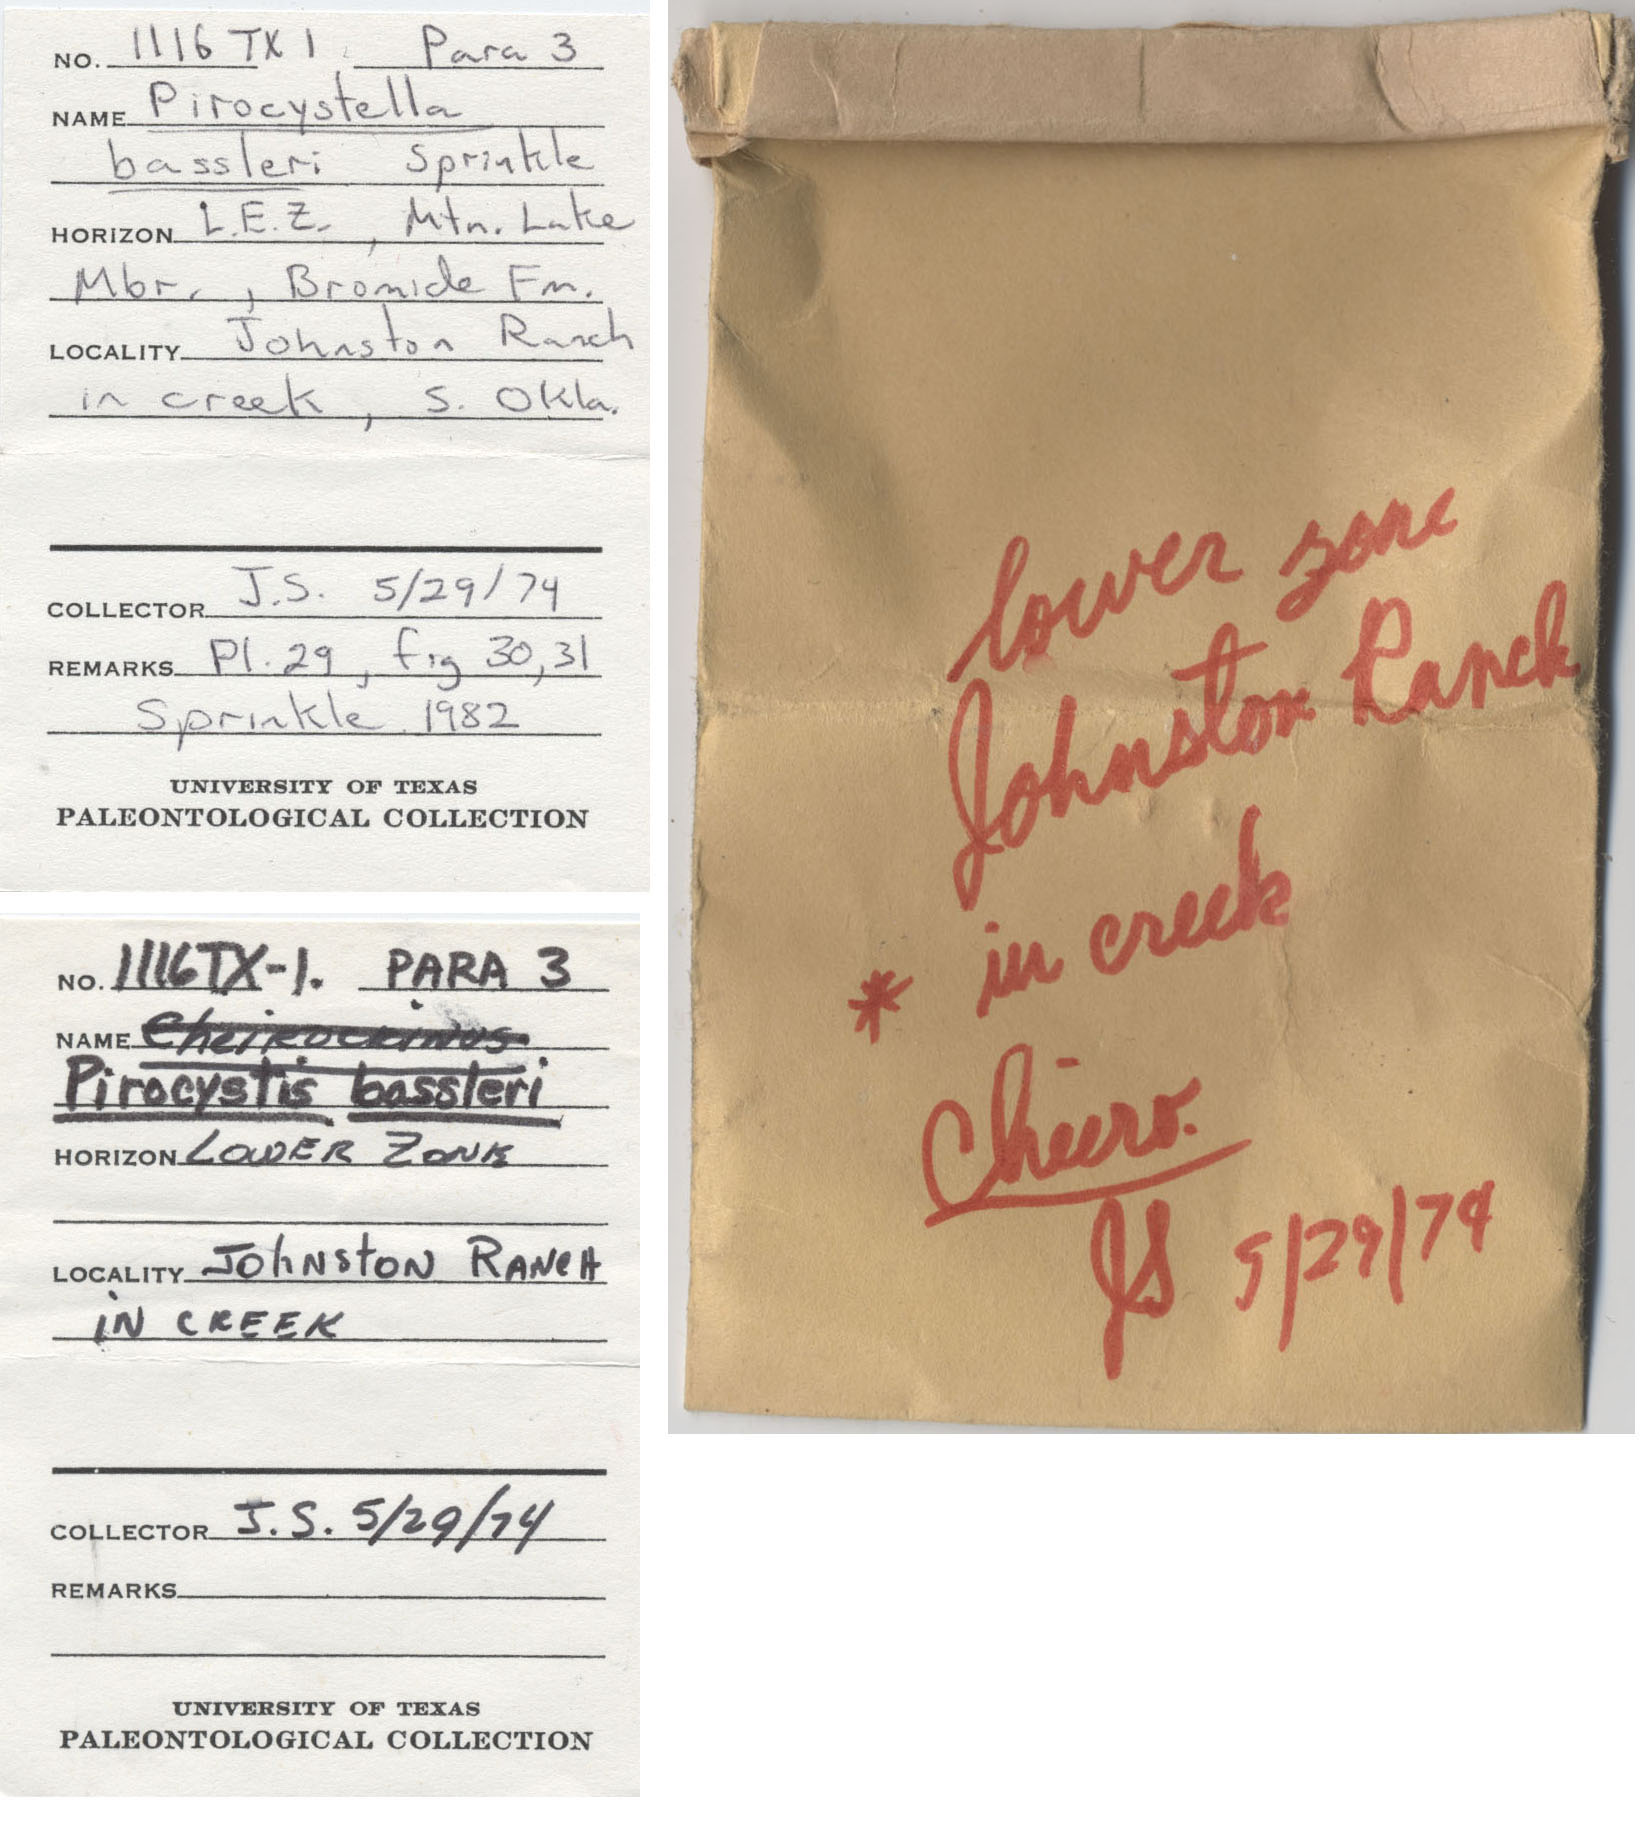 NO. 1116 TX 1. Para 3
NAME Pirocystella
bassleri Sprinkle
HORIZON L.E.Z., Mtn. Lake
Mbr., Bromide Fm.
LOCALITY Johnston Ranch
in creek, S. Okla.
COLLECTOR J.S. 5/29/74
REMARKS Pl. 29, fig 30,31
Sprinkle 1982
UNIVERSITY OF TEXAS
PALEONTOLOGICAL COLLECTION
NO. 1116TX-1. PARA 3
NAME Cheirocrinus
Pirocystis bassleri
HORIZON LOWER ZONE
LOCALITY JOHNSTON RANCH
IN CREEK
COLLECTOR J.S. 5/29/74
REMARKS
UNIVERSITY OF TEXAS
PALEONTOLOGICAL COLLECTION
lower zone
Johnston Ranch
* in creek
Cheiro.
JS 5/29/74